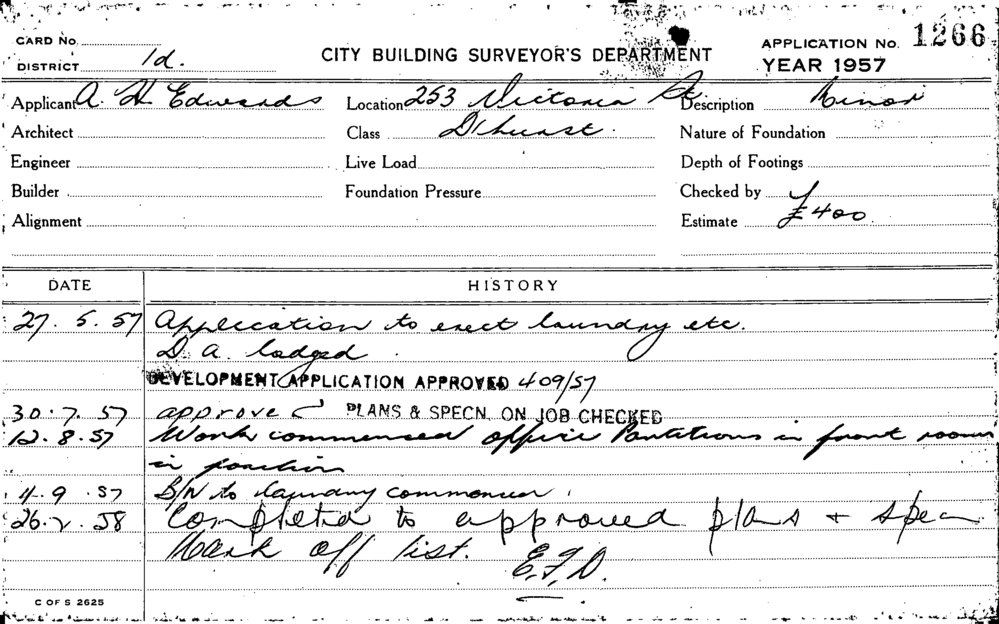 CARD No.
DISTRICT 1d.
CITY BUILDING SURVEYOR'S DEPARTMENT
APPLICATION No. 1266
YEAR 1957
Applicant A. H. Edwards Location 253 Victoria St. Description Minor
Architect Class D'hurst. Nature of Foundation
Engineer Live Load Depth of Footings
Builder Foundation Pressure Checked by
Alignment Estimate £400
DATE HISTORY
27. 5. 57 Application to erect laundry etc.
D. A. lodged.
DEVELOPMENT APPLICATION APPROVED 409/57
30. 7. 57 approve PLANS & SPECN. ON JOB CHECKED
12. 8. 57 Work commenced office Partitions in front rooms
in position
4. 9. 57 B/N to laundry commenced.
26. 2. 58 Completed to approved plans + specn
Mark off list. E.F.D.
C OF S 2625